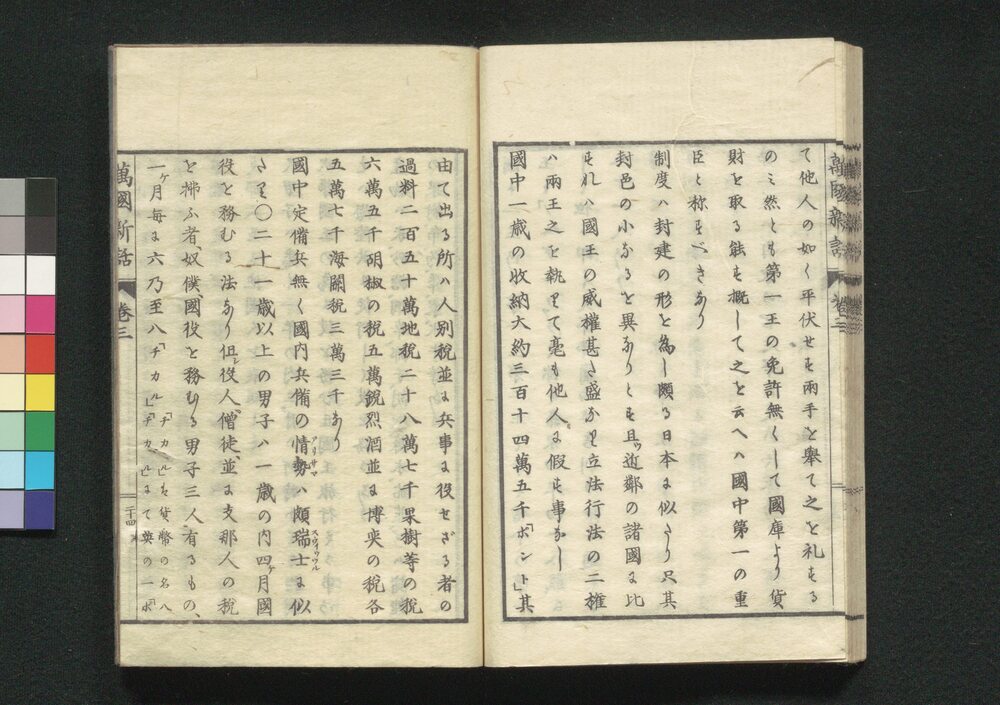 萬國新話 卷三
て他人の如く平伏せも兩手と擧て之と礼もる
のミ然とも第一王の免許無くして國庫より貨
財を取る能も概して之と云へハ國中第一の重
臣と称もべきなり
制度ハ封建の形と為し頗る日本に似たり只其
封邑の小なると異なりとも且ツ近鄰の諸國に比
もれハ國王の威權甚さ盛かり立法行法の二權
ハ兩王之を執りて毫も他人に假も事なし
國中一歳の收納大約三百十四萬五千「ポント」其
由て出る所ハ人別税並に兵事に役せざる者の
過料二百五十萬地税二十八萬七千果樹等の税
六萬五千胡椒の税五萬鋭烈酒並に博奕の税各
五萬七千海關税三萬三千なり
國中定備兵無く國内兵備の情勢ハ頗瑞士に似
アリサマ
スウィッツル
さり〇二十一歳以上の男子ハ一歳の内四ケ月國
役と務むる法なり但シ役人、僧徒、並に支那人の税
と拂ふ者、奴僕、國役と務むる男子三人有るもの、
一ケ月毎に六乃至八「チカル」
「チカル」も貨幣の名八
「チカル」にて英の一「ポ
萬國新話 卷三 二十四